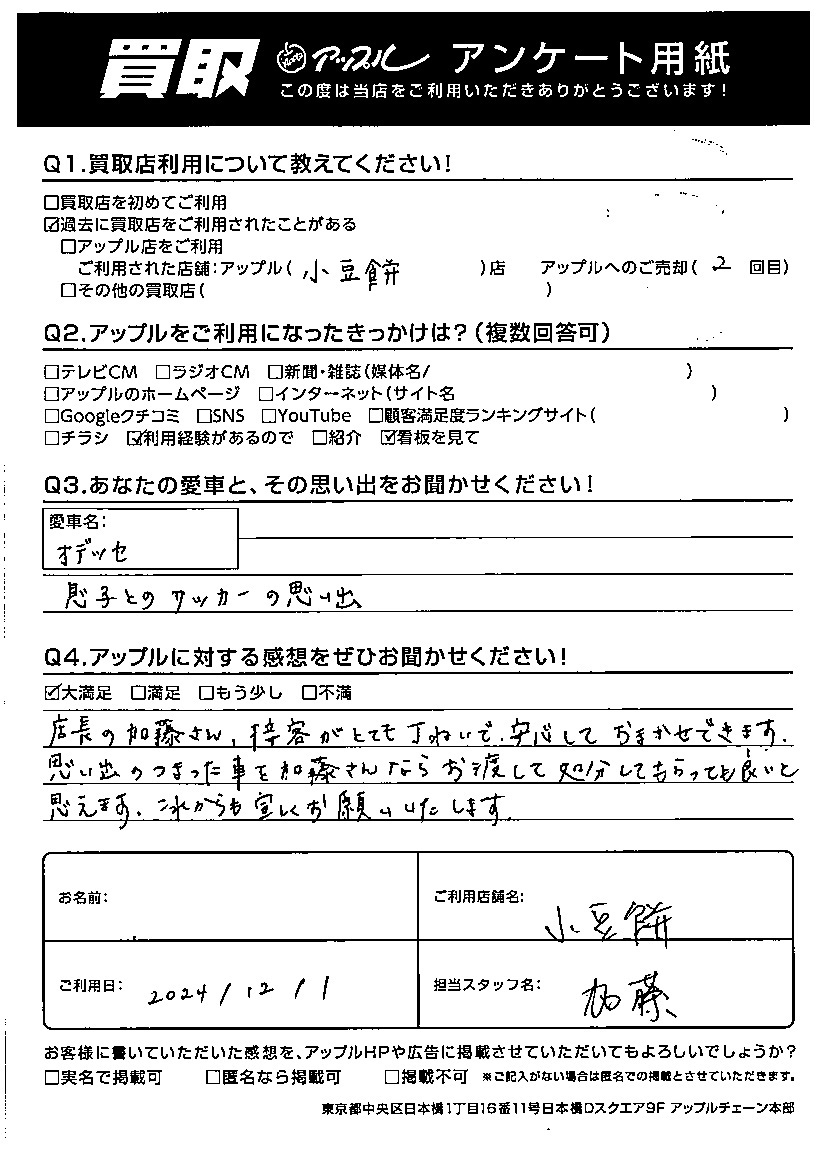 買取 アップル アンケート用紙
この度は当店をご利用いただきありがとうございます!
Q1.買取店利用について教えてください!
□買取店を初めてご利用
☑過去に買取店をご利用されたことがある
□アップル店をご利用
ご利用された店舗:アップル( 小豆餅 )店 アップルへのご売却( 2 回目)
□その他の買取店( )
Q2.アップルをご利用になったきっかけは?(複数回答可)
□テレビCM □ラジオCM □新聞・雑誌(媒体名/ )
□アップルのホームページ □インターネット(サイト名 )
□Googleクチコミ □SNS □YouTube □顧客満足度ランキングサイト( )
□チラシ ☑利用経験があるので □紹介 ☑看板を見て
Q3.あなたの愛車と、その思い出をお聞かせください!
愛車名:
オデッセ
息子とのサッカーの思い出
Q4.アップルに対する感想をぜひお聞かせください!
☑大満足 □満足 □もう少し □不満
店長の加藤さん、接客がとても丁ねいで、安心しておまかせできます。
思い出のつまった車を加藤さんならお渡しして処分してもらっても良いと
思えます。これからも宜しくお願いいたします。
お名前:
ご利用店舗名: 小豆餅
ご利用日: 2024/12/1
担当スタッフ名: 加藤
お客様に書いていただいた感想を、アップルHPや広告に掲載させていただいてもよろしいでしょうか?
□実名で掲載可 □匿名なら掲載可 □掲載不可 ※ご記入がない場合は匿名での掲載とさせていただきます。
東京都中央区日本橋1丁目16番11号日本橋Dスクエア9F アップルチェーン本部